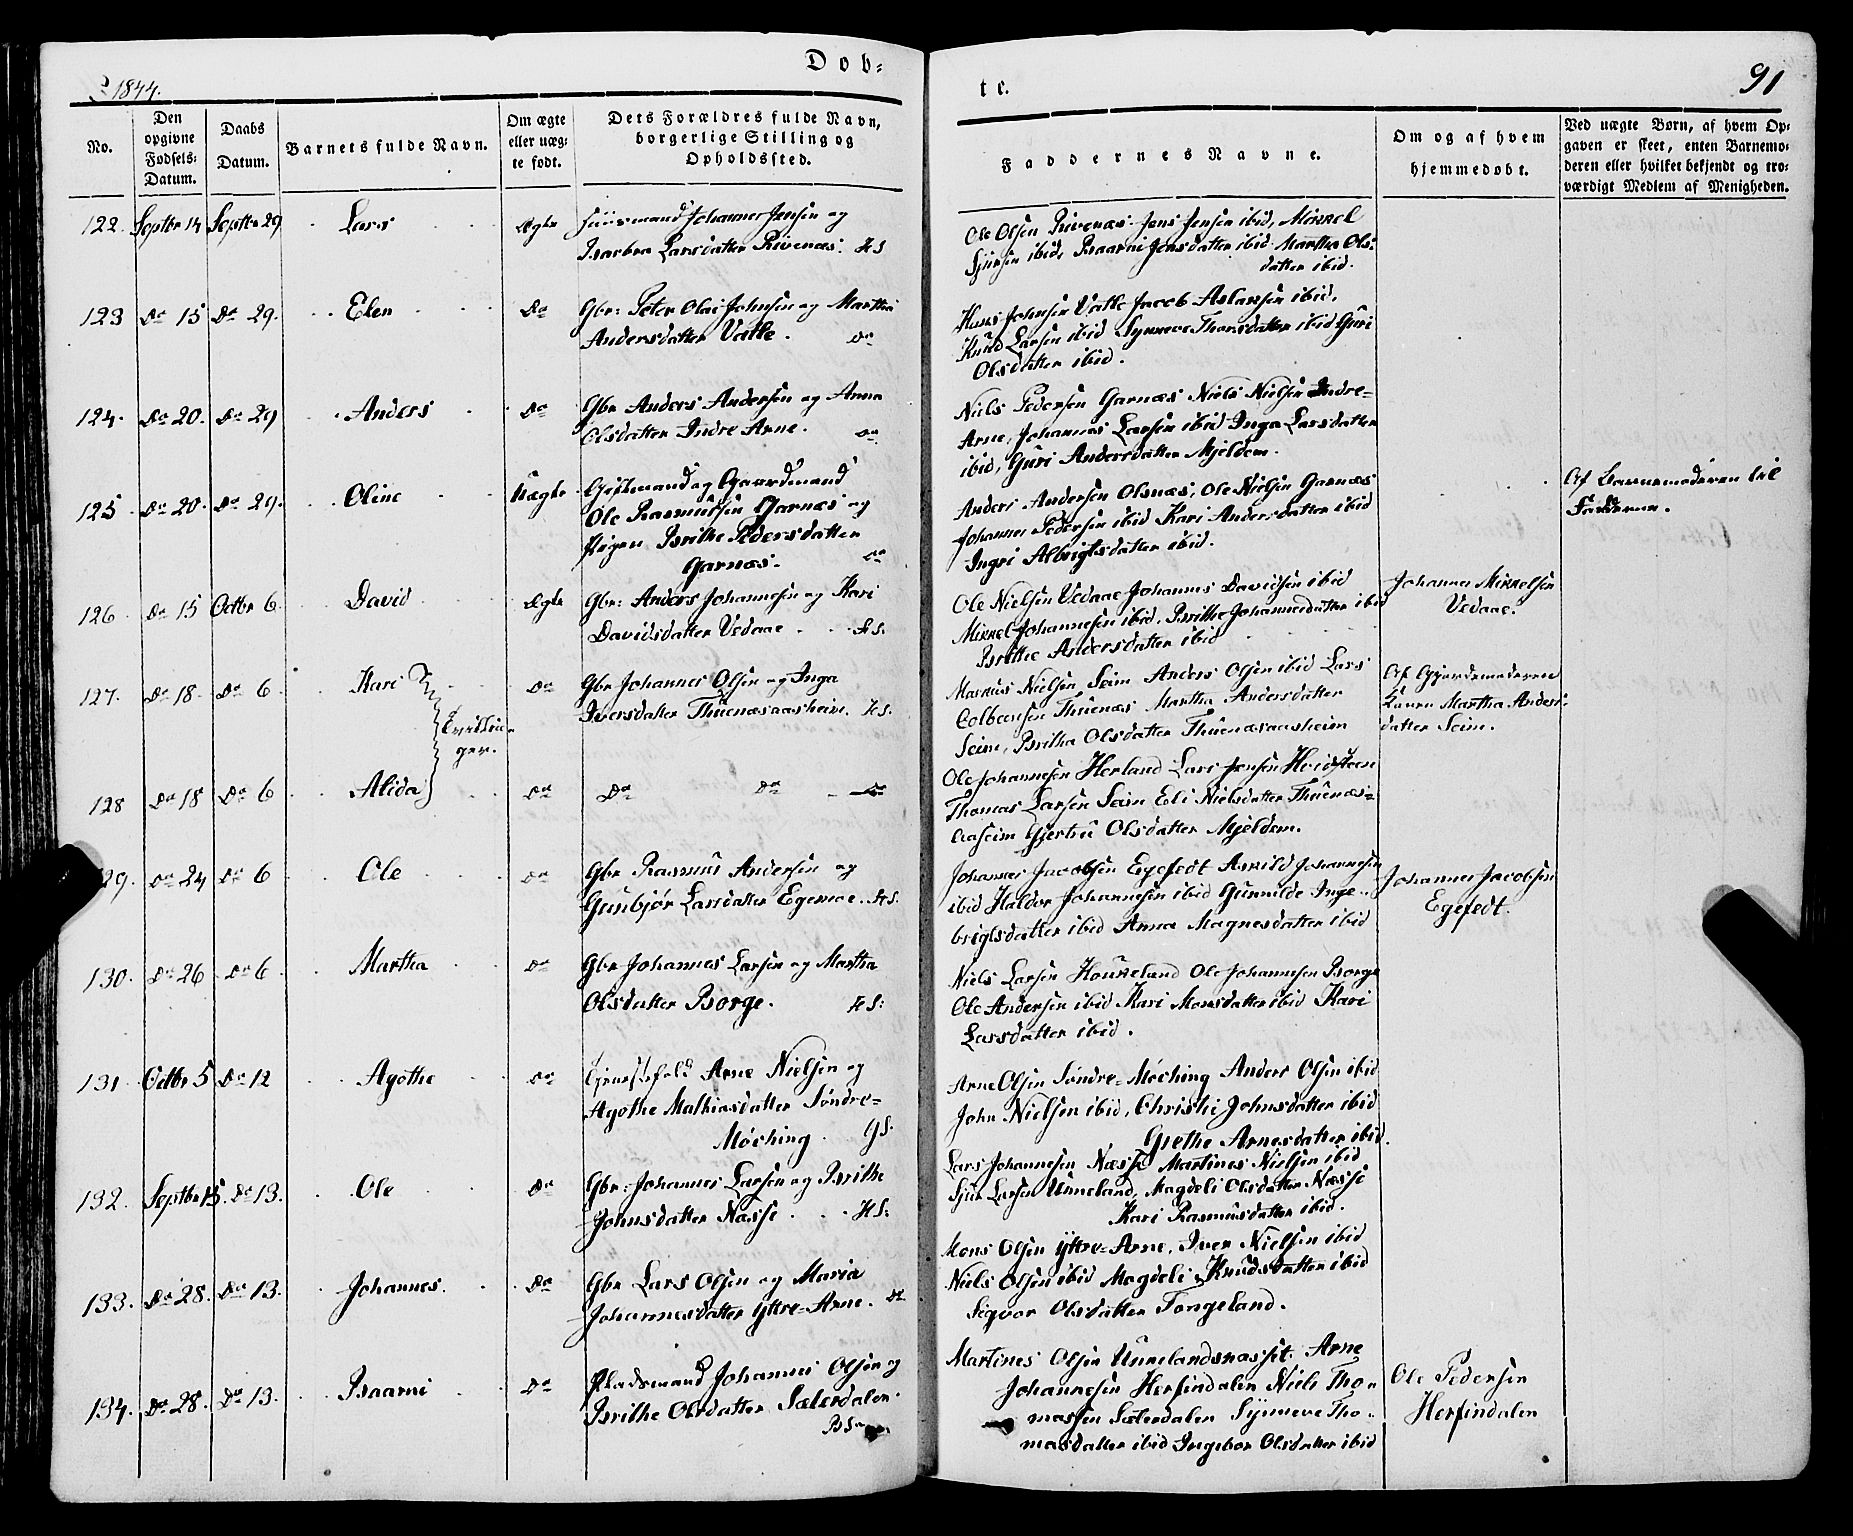 Døb-
1844.
te.
91
No.
Den opgivne Fødsels-Datum.
Daabs Datum.
Barnets fulde Navn.
Om ægte eller uægte født.
Dets Forældres fulde Navn, borgerlige Stilling og Opholdssted.
Faddernes Navne.
Om og af hvem hjemmedøbt.
Ved uægte Børn, af hvem Opgaven er skeet, enten Barnemoderen eller hvilket bekjendt og troværdigt Medlem af Menigheden.
122. Septbr 14 Septbr 29 Lars Ægte Huusmand Johannes Jensen og
Barbra Larsdatter Rivenæs. HS
Ole Olsen Rivenæs. Jens Jensen ibid, Mikkel
Sjursen ibid, Baarni Jensdatter ibid. Martha Ols-
datter ibid.
123 Do 15 Do 29. Elen Do Gbr: Peter Olai Johnsen og Martha
Andersdatter Valle. Do
Hans Johnsen Valle Jacob Aslaksen ibid,
Knud Larsen ibid Synneve Thomsdatter ibid Guri
Olsdatter ibid.
124. Do 20. Do 29 Anders Do Gbr Anders Andersen og Anna
Olsdatter Indre Arne. Do
Niels Pedersen Garnæs Niels Nielsen Indre-
Arne, Johannes Larsen ibid Inga Larsdatter
ibid, Guri Andersdatter Mjeldem.
125. Do 20. Do 29. Oline Uægte Giftmand og Gaardmand
Ole Rasmusen Garnæs og
Pigen Brithe Pedersdatter
Garnæs. Do
Anders Andersen Olsnæs, Ole Nielsen Garnæs
Johannes Pedersen ibid Kari Andersdatter ibid
Ingri Albrigtsdatter ibid.
Af Barnemoderen til
Fadderne.
126. Do 15 Octbr 6. David Ægte Gbr: Anders Johannesen og Kari
Davidsdatter Vedaae. HS.
Ole Nielsen Vedaae Johannes Davidsen ibid
Mikkel Johannesen ibid. Brithe Johannesdatter ibid
Brithe Andersdatter ibid
Johannes Mikkelsen
Vedaae.
127. Do 18. Do 6. Kari Do Gbr Johannes Olsen og Inga
Iversdatter Thuenæsaasheim. HS.
Tvillin-
ger.
Markus Nielsen Seim Anders Olsen ibid Lars
Colbensen Thuenæs Martha Andersdatter
Seim, Britha Olsdatter Thuenæsaasheim
Af Gjordemoderen
Martha Anders-
datter Seim.
128 Do 18 Do 6 Alida Do Do Do Do
Ole Johannesen Herland Lars Jensen
Thomas Larsen Seim Eli Nielsdatter Thuenæs-
aaseim Gjertru Olsdatter Mjeldem.
129. Do 24 Do 6 Ole Do Gbr Rasmus Andersen og
Gunbjør Larsdatter Egemoe. HS.
Johannes Jacobsen Egefedt Johannesen
ibid Haldor Johannesen ibid Gunnilde Inge-
brigtsdatter ibid Anna Magnesdatter ibid
Johannes Jacobsen
Egefedt.
130. Do 26 Do 6 Martha Do Gbr Johannes Larsen og Martha
Olsdatter Borge. HS:
Niels Larsen Houkeland Ole Johannesen Borge
Ole Andersen ibid Kari Monsdatter ibid Kari
Larsdatter ibid.
131. Octbr 5 Do 12 Agothe Do Tjenestefolk Arne Nielsen og
Agothe Mathiasdatter Søndre-
Møching. GS.
Arne Olsen Søndre-Møching Anders Olsen ibid
John Nielsen ibid, Christi Johnsdatter ibid
Grethe Arnesdatter ibid.
132. Septbr 15. Do 13. Ole Do Gbr: Johannes Larsen og Brithe
Johnsdatter Næsse. HS:
Lars Johannesen Næsse Martines Nielsen ibid
Sjur Larsen Unneland, Magdeli Olsdatter Næsse
Kari Rasmusdatter ibid.
133. Do 28. Do 13. Johannes. Do Gbr Lars Olsen og Maria
Johannesdatter Yttre-Arne. Do
Mons Olsen Yttre-Arne, Iver Nielsen ibid
Niels Olsen ibid Magdeli Knudsdatter ibid
Sigvor Olsdatter Tongeland.
134. Do 28. Do 13. Baarni Do Pladsmand Johannes Olsen og
Brithe Olsdatter Sæterdalen.
Martines Olsen Arne
Johannesen Herfindalen Niels Tho-
massen Sæterdalen Synneve Tho-
masdatter ibid Ingebor Olsdatter ibid
Ole Pedersen
Herfindalen